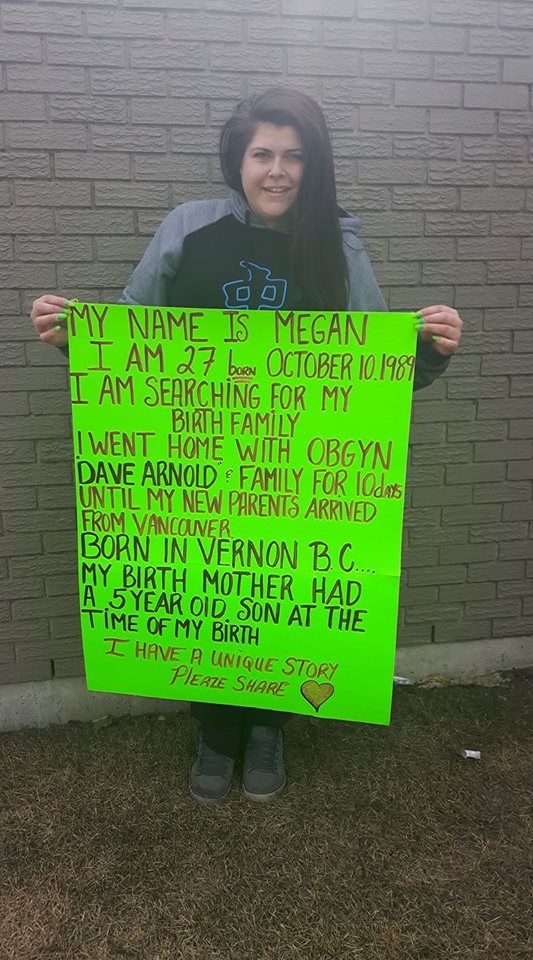 MY NAME IS MEGAN
I AM 27 born OCTOBER 10.1989
I AM SEARCHING FOR MY
BIRTH FAMILY
I WENT HOME WITH OBGYN
DAVE ARNOLD & FAMILY FOR 10 days
UNTIL MY NEW PARENTS ARRIVED
FROM VANCOUVER.
BORN IN VERNON B.C....
MY BIRTH MOTHER HAD
A 5 YEAR OLD SON AT THE
TIME OF MY BIRTH
I HAVE A UNIQUE STORY
PLEAZE SHARE